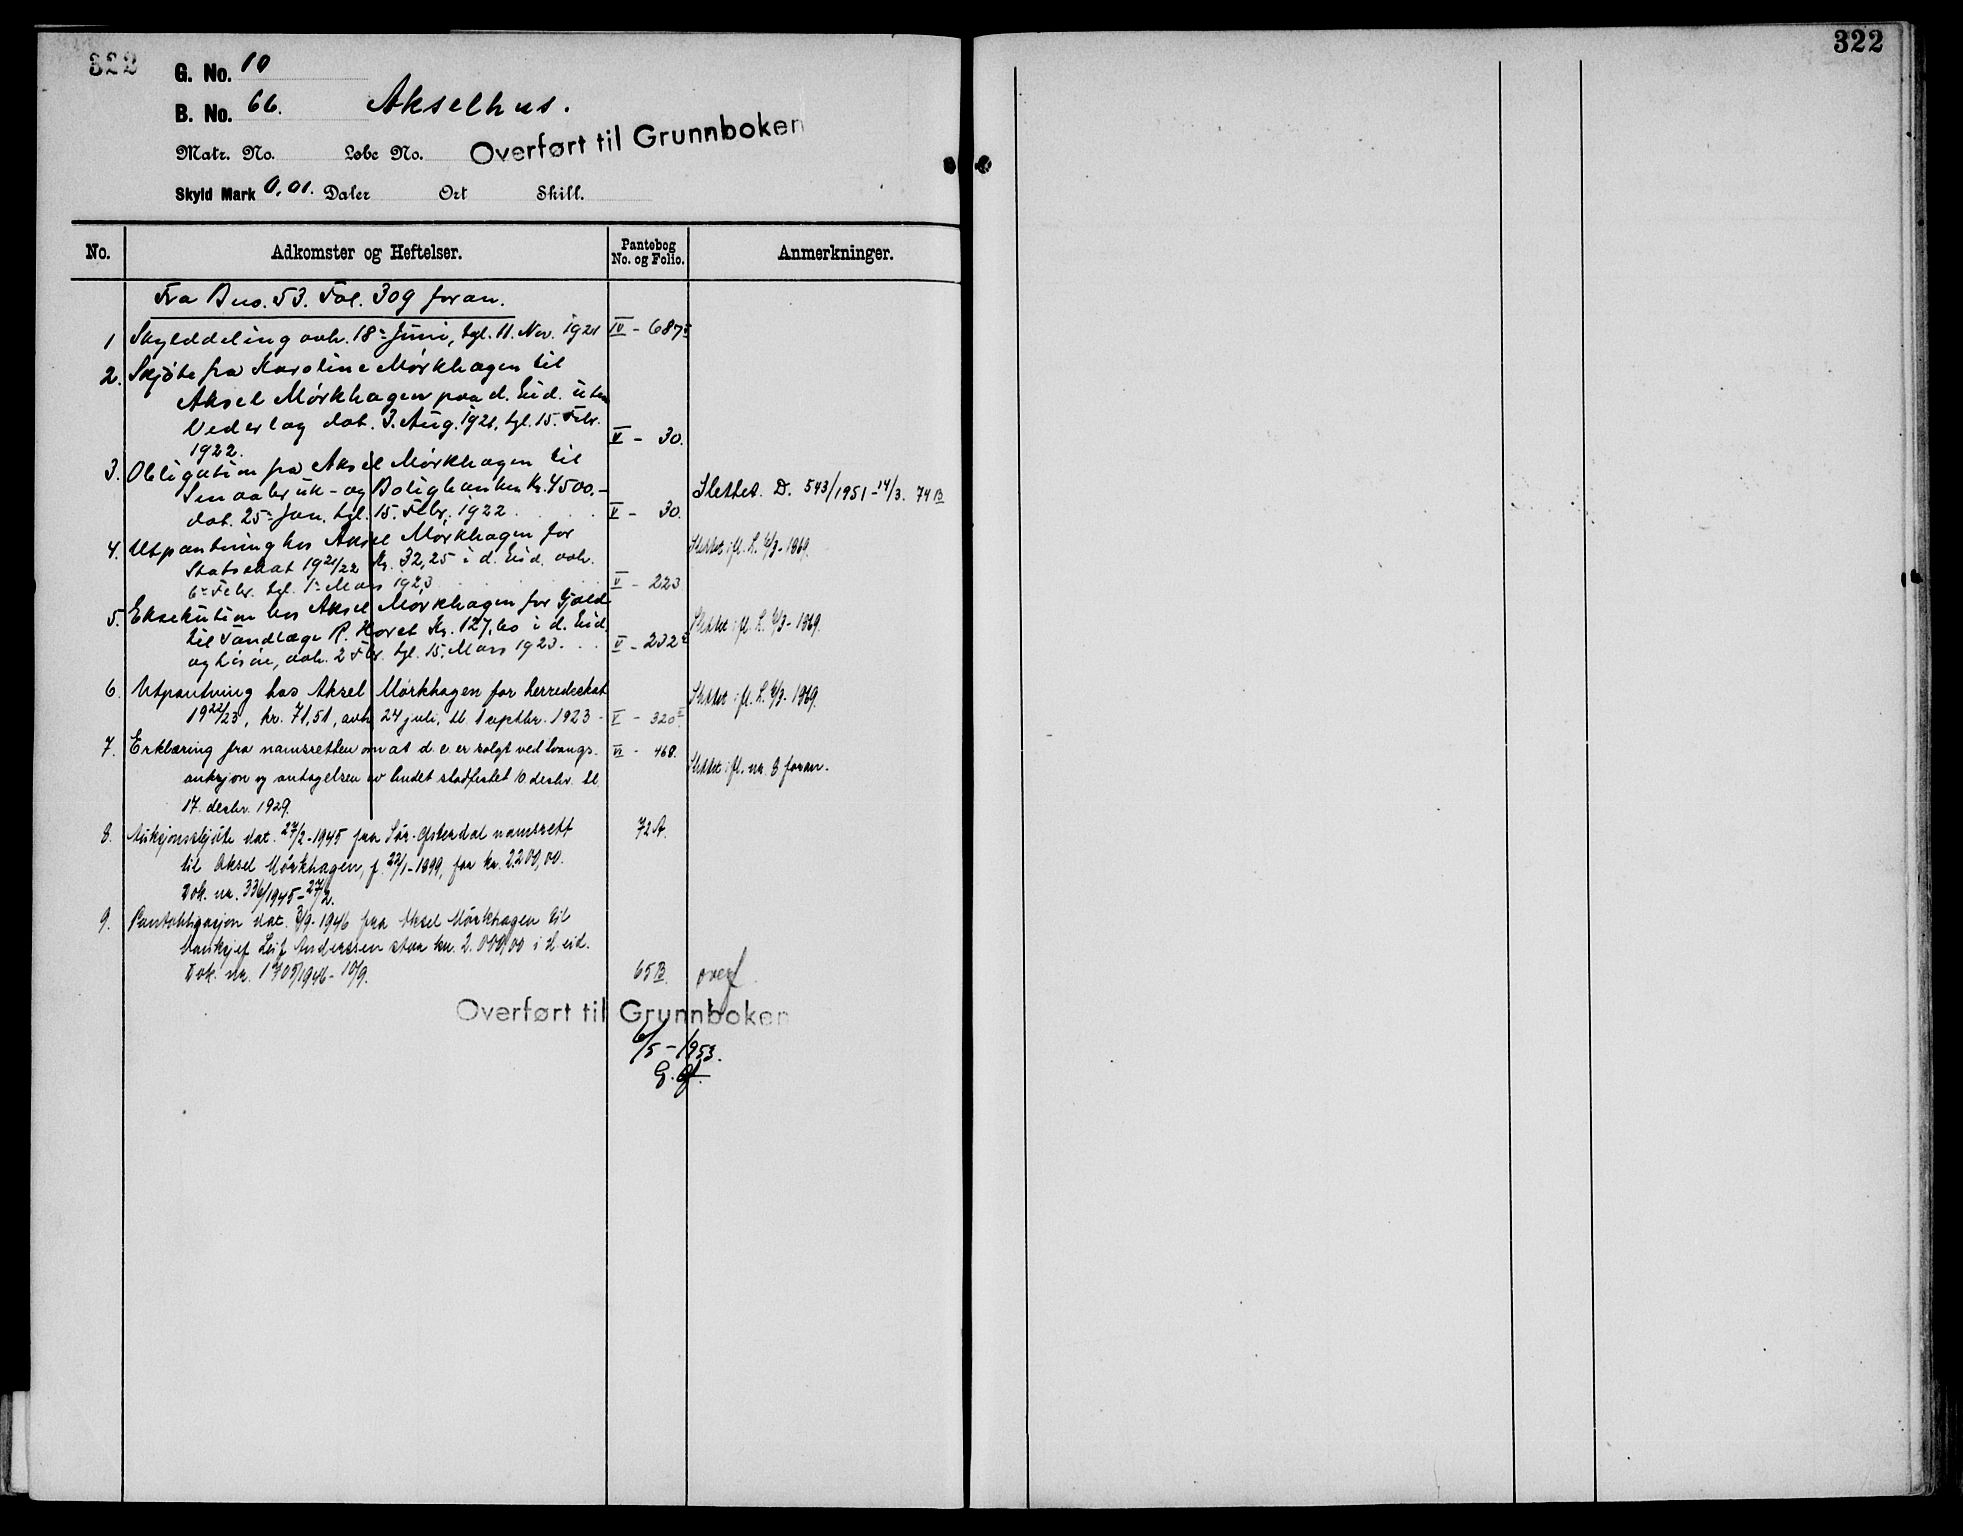 322
322
G. No. 10
B. No. 66. Akselhus.
Overført til Grunnboken
Matr. No. Løbe No.
Skyld Mark 0,01. Daler Ort Skill.
No. Adkomster og Heftelser. Pantebog No. og Folio. Anmerkninger.
Fra Bno. 53. Fol. 309 foran.
1 Skylddeling avh. 18 Juni, tgl. 11. Nov. 1921 IV - 687
2. Skjöte fra Karoline Mörkhagen til
Aksel Mörkhagen paa d. Eid. uten
Vederlag dat. 3. Aug. 1921, tgl. 15. Febr.
1922. V - 30.
3. Obligation fra Aksel Mörkhagen til
Smaabruk- og Boligbanken Kr. 4500,-
dat. 25 Jan. tgl. 15. Febr. 1922. V - 30. Slettet. D. 543/1951-14/3. 74 B
4. Utpantning hos Aksel Mörkhagen for
Statsskat 1921/22 Kr. 32,25 i d. Eid. avh.
6 Febr. tgl. 1 Mars 1923 V - 223 Slettet ifl. L. 6/3-1869.
5. Eksekution hos Aksel Mörkhagen for Gjæld
til Tandlæge R. Hovet Kr. 127,60 i d. Eid.
og Lösöre, avh. 2 Febr. tgl. 15. Mars 1923. V - 232 Slettet ifl. L. 6/3-1869.
6. Utpantning hos Aksel Mørkhagen for herredsskat
1922/23, kr. 71,51, avh. 24 juli, tl. 1 septbr. 1923 V - 320 Slettet ifl. L. 6/3-1869.
7. Erklæring fra namsretten om at d. e. er solgt ved tvangs-
auksjon og antagelsen av budet stadfestet 10 desbr. tl.
17. desbr. 1929. VI - 468. Slettet ifl. nr. 8 foran.
8. Auksjonsskjøte dat. 27/2-1945 fra Sør-Østerdal namsrett
til Aksel Mørkhagen, f. 22/1-1899, for kr. 2200,00.
Dok. nr. 336/1945-27/2. 72 A.
9. Pantobligasjon dat. 3/9-1946 fra Aksel Mørkhagen til
banksjef Leif Anderssen stor kr. 2.000,00 i d. eid.
Dok. nr. 1405/1946-10/9. 65 B. overf.
Overført til Grunnboken
6/5-1953.